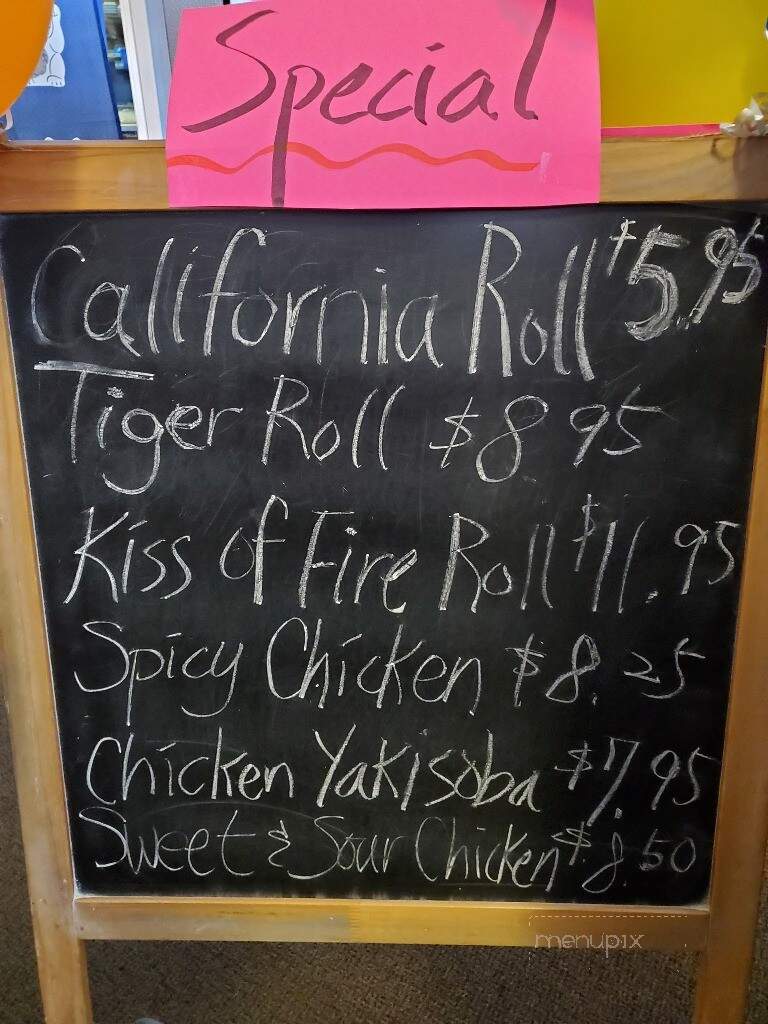 Special
California Roll $5.95
Tiger Roll $8.95
Kiss of Fire Roll $11.95
Spicy Chicken $8.25
Chicken Yakisoba $7.95
Sweet & Sour Chicken $8.50
menupix